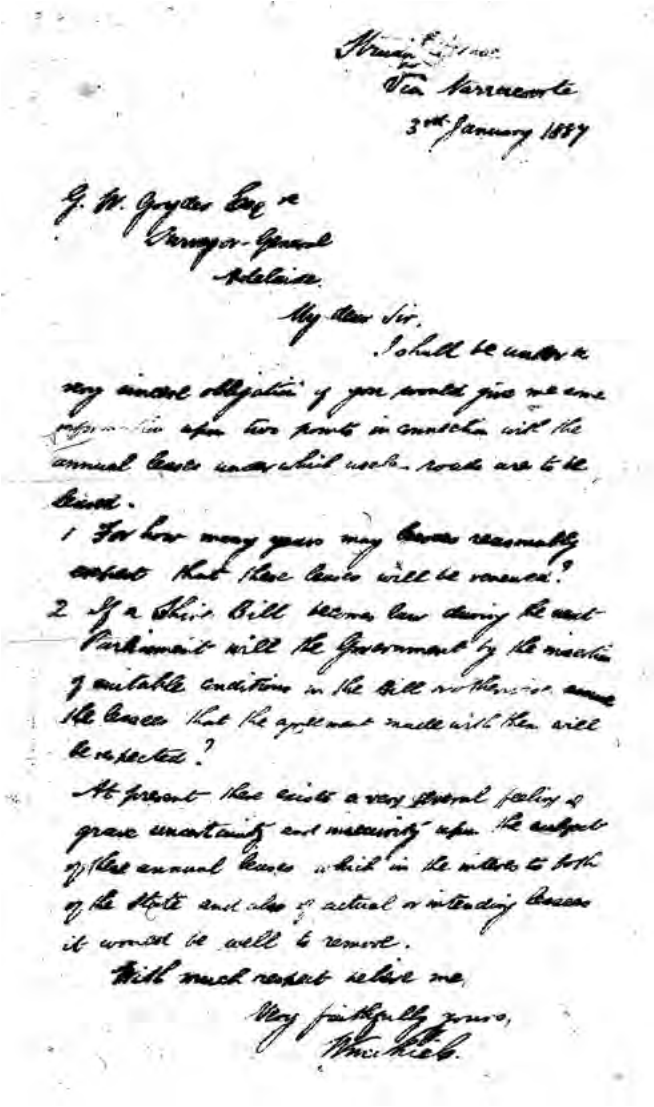 Struan
Via Narracoorte
3rd January 1887
G. W. Goyder Esqre
Surveyor-General
Adelaide.
My dear Sir,
I shall be under a
very sincere obligation if you would give me some
information upon two points in connection with the
annual leases under which useless roads are to be
leased.
1 For how many years may lessees reasonably
expect that these leases will be renewed?
2 If a Shire Bill becomes law during the next
Parliament will the Government by the insertion
of suitable conditions in the Bill or otherwise
the lessees that the agreement made with them will
be respected?
At present there exists a very general feeling of
grave uncertainty and insecurity upon the subject
of these annual leases which in the interests both
of the State and also of actual or intending lessees
it would be well to remove.
With much respect believe me,
Very faithfully yours,